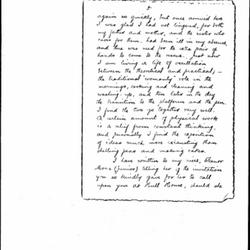 again so quickly, but once arrived here
I was glad I had not lingered, for both
my father and mother, and the cook who
cares for them, had been ill in my absence,
and there was need for the extra pair of
hands to come to the rescue. And now
I am living a life of vacillation
between the theoretical and practical, –
the traditional "womanly" role in the
mornings, cooking and cleaning and
washing up, and then later in the day
the transition to the platform and the pen.
I find the two go together very well.
A certain amount of physical work
is a relief from constant thinking,
and personally I find the exposition
of ideas much more exhausting than
shelling peas and making cakes.
I have written to my niece, Eleanor
Mora (junior) telling her of the invitation
you so kindly gave for her to call
upon you at Hull House, should she